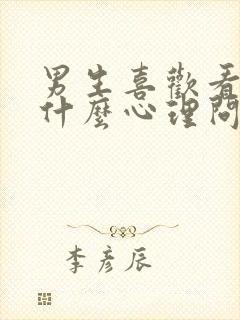 男生喜歡看
什麼心理問
李彥辰